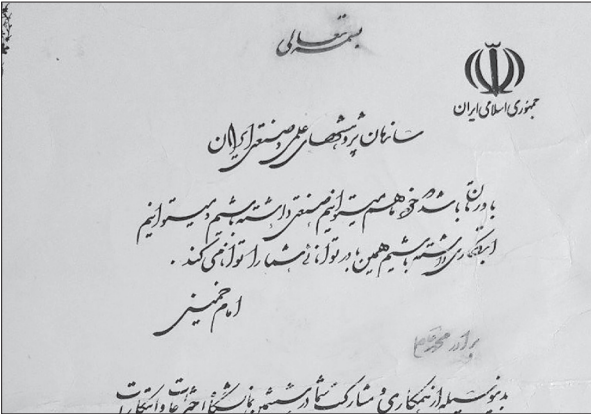 بسمه تعالی
جمهوری اسلامی ایران
سازمان پژوهشهای علمی و صنعتی ایران
باورتان باشد که خود ما هم میتوانیم صنعتی داشته باشیم و میتوانیم
ابتکاری داشته باشیم همین باور توانائی شما را توانا می کند .
امام خمینی
برادر محترم
بدینوسیله از همکاری و مشارکت شما در ششمین نمایشگاه اختراعات و ابتکارات